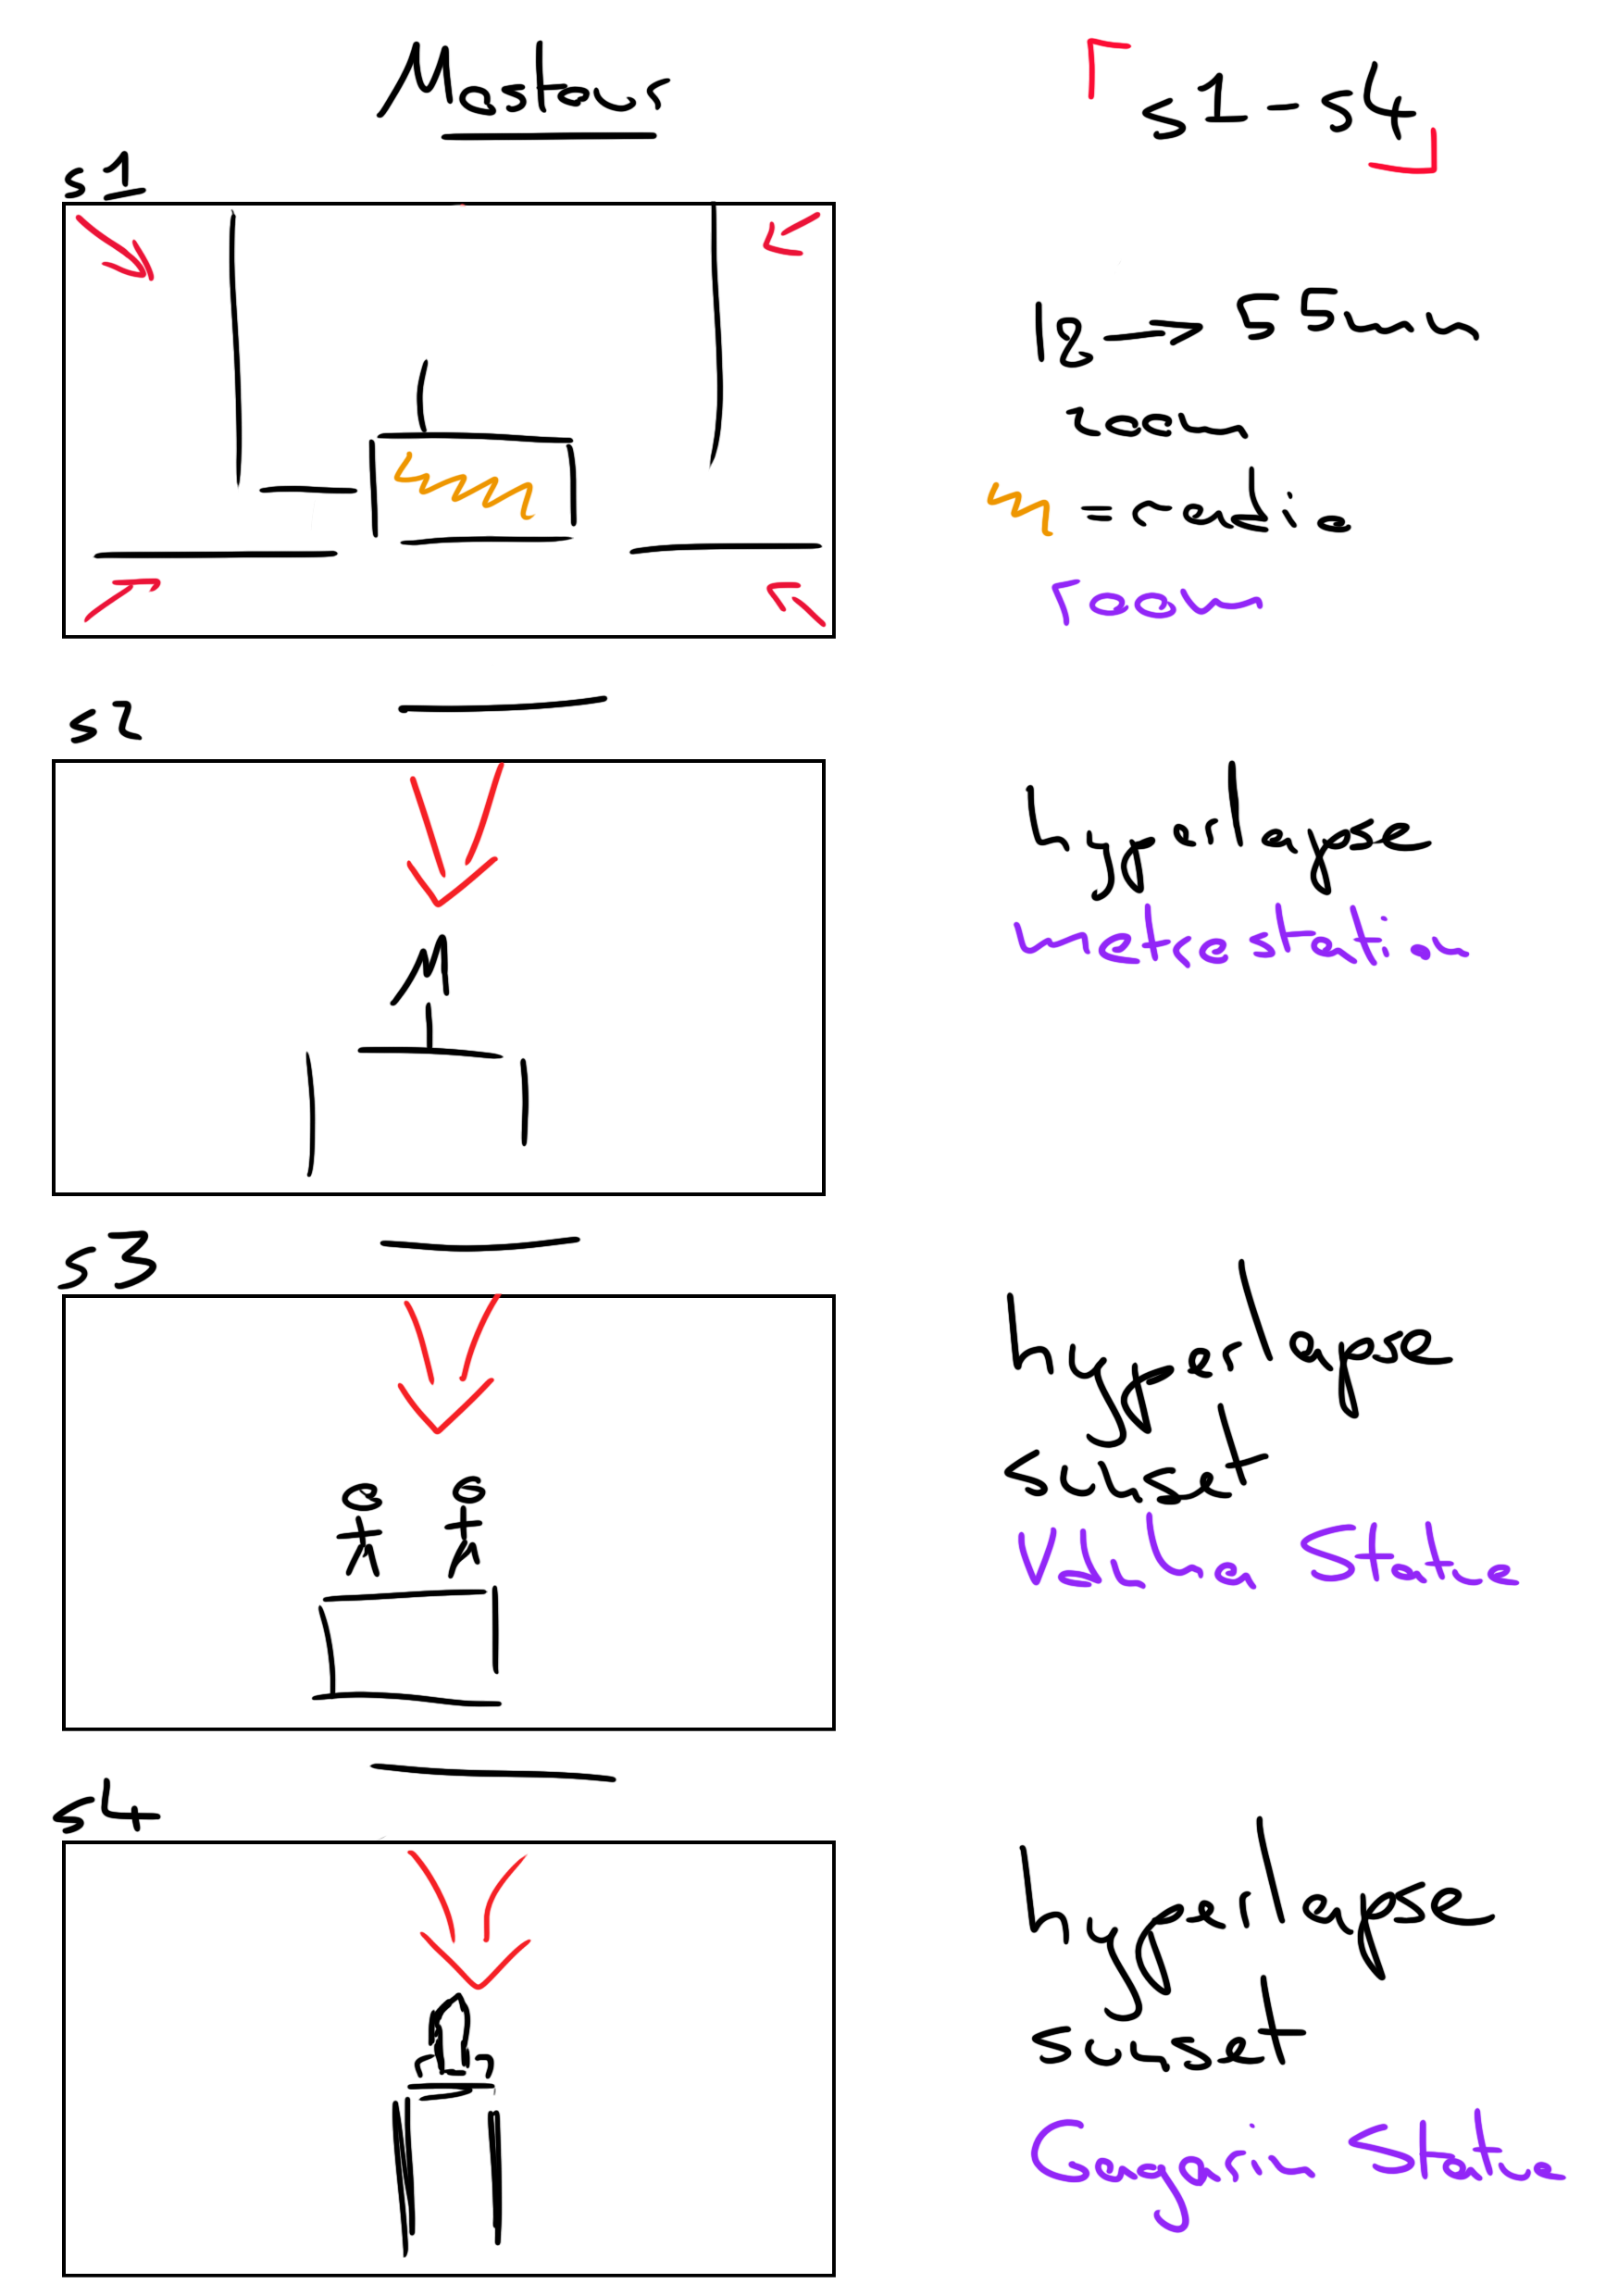 Mostour
s1-s4
s1
18→55mm
zoom
= radio
room
s2
hyperlapse
metrostation
M
s3
hyperlapse
sunset
Vdnha Statue
s4
hyperlapse
sunset
Gagarin Statue